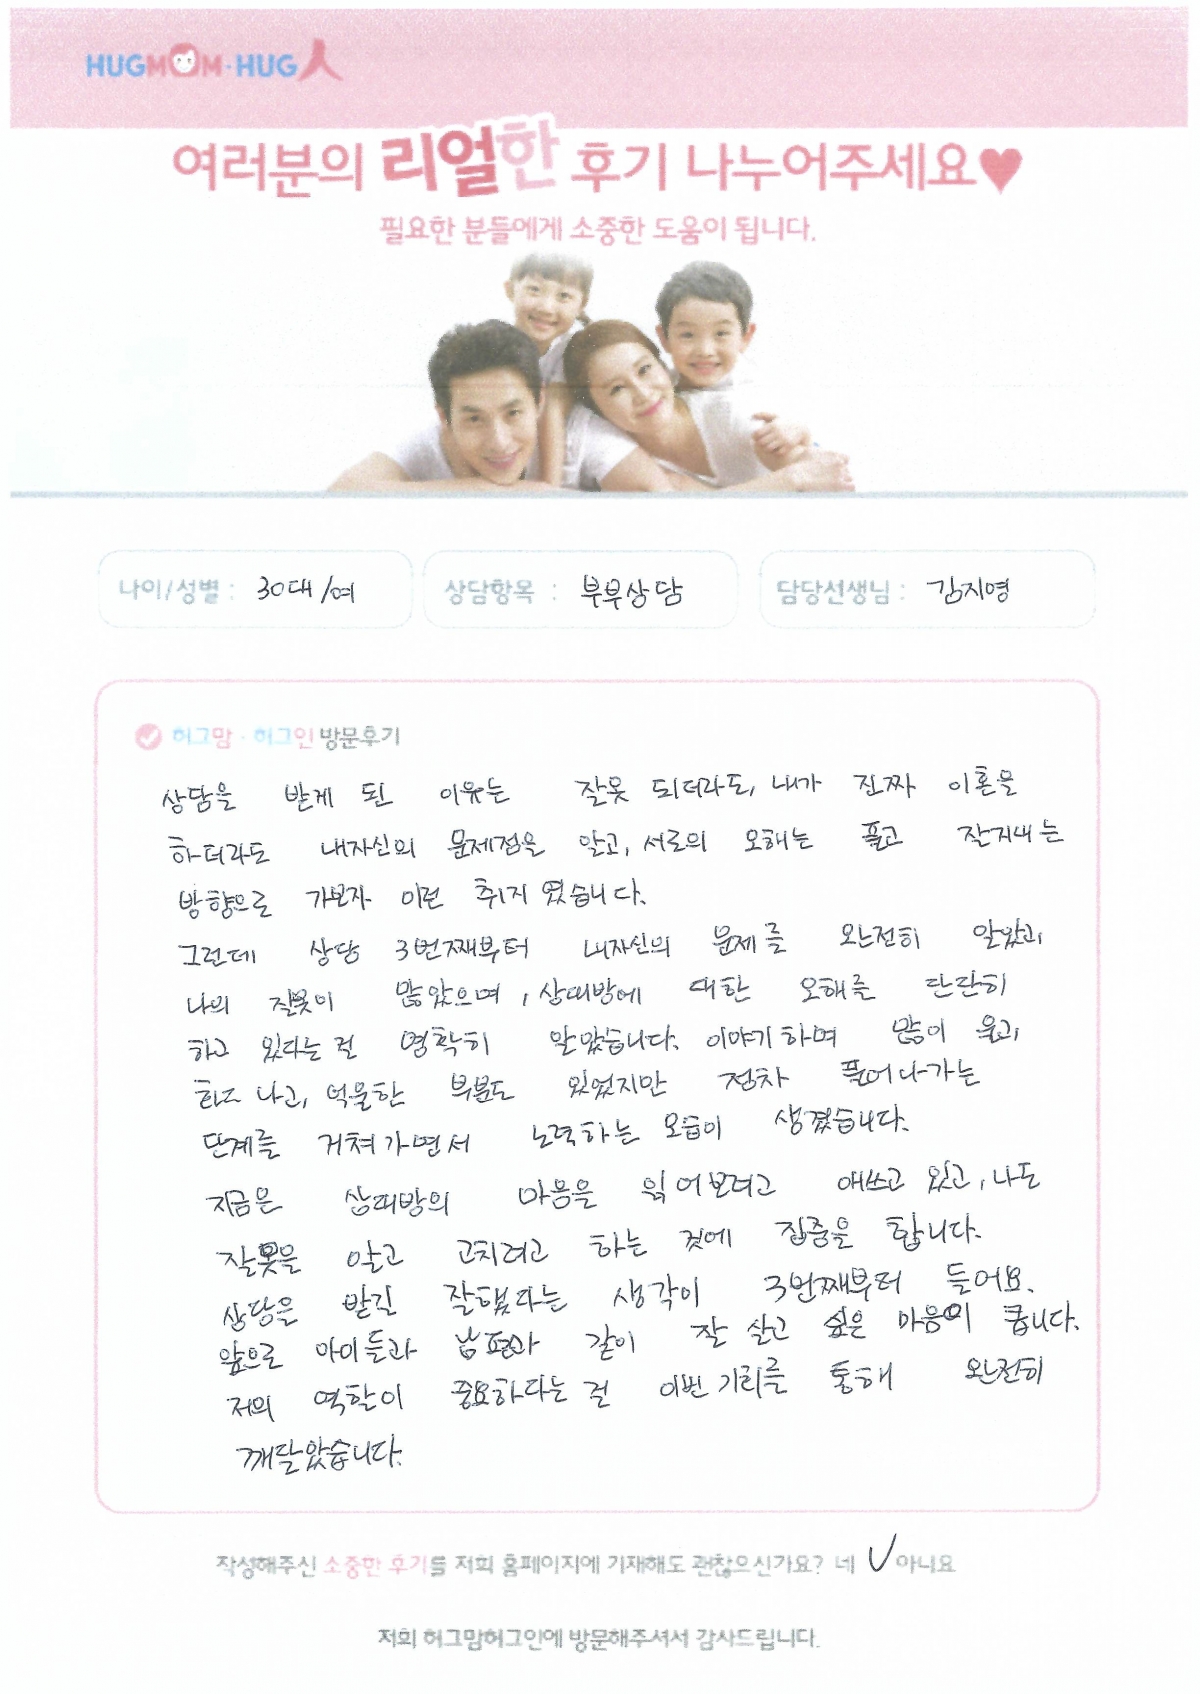 HUGMOM·HUG人
여러분의 리얼한 후기 나누어주세요♥
필요한 분들에게 소중한 도움이 됩니다.
나이/성별 : 30대/여
상담항목 : 부부상담
담당선생님 : 김지영
허그맘·허그인 방문후기
상담을 받게 된 이유는 잘못 되더라도, 내가 진짜 이혼을
하더라도 내자신의 문제점을 알고, 서로의 오해는 풀고 잘지내는
방향으로 가보자 이런 취지 였습니다.
그런데 상담 3번째부터 내자신의 문제를 완전히 알았고,
나의 잘못이 많았으며, 상대방에 대한 오해를 단단히
하고 있다는 걸 명확히 알았습니다. 이야기하며 많이 울고,
화도 나고, 억울한 부분도 있었지만 점차 풀어나가는
단계를 거쳐가면서 노력하는 모습이 생겼습니다.
지금은 상대방의 마음을 읽어보려고 애쓰고 있고, 나도
잘못을 알고 고치려고 하는 것에 집중을 합니다.
상담을 받길 잘했다는 생각이 3번째부터 들어요.
앞으로 아이들과 남편과 같이 잘 살고 싶은 마음이 큽니다.
저의 역할이 중요하다는 걸 이번 기회를 통해 완전히
깨달았습니다.
작성해주신 소중한 후기를 저희 홈페이지에 기재해도 괜찮으신가요? 네 ✓ 아니요
저희 허그맘허그인에 방문해주셔서 감사드립니다.